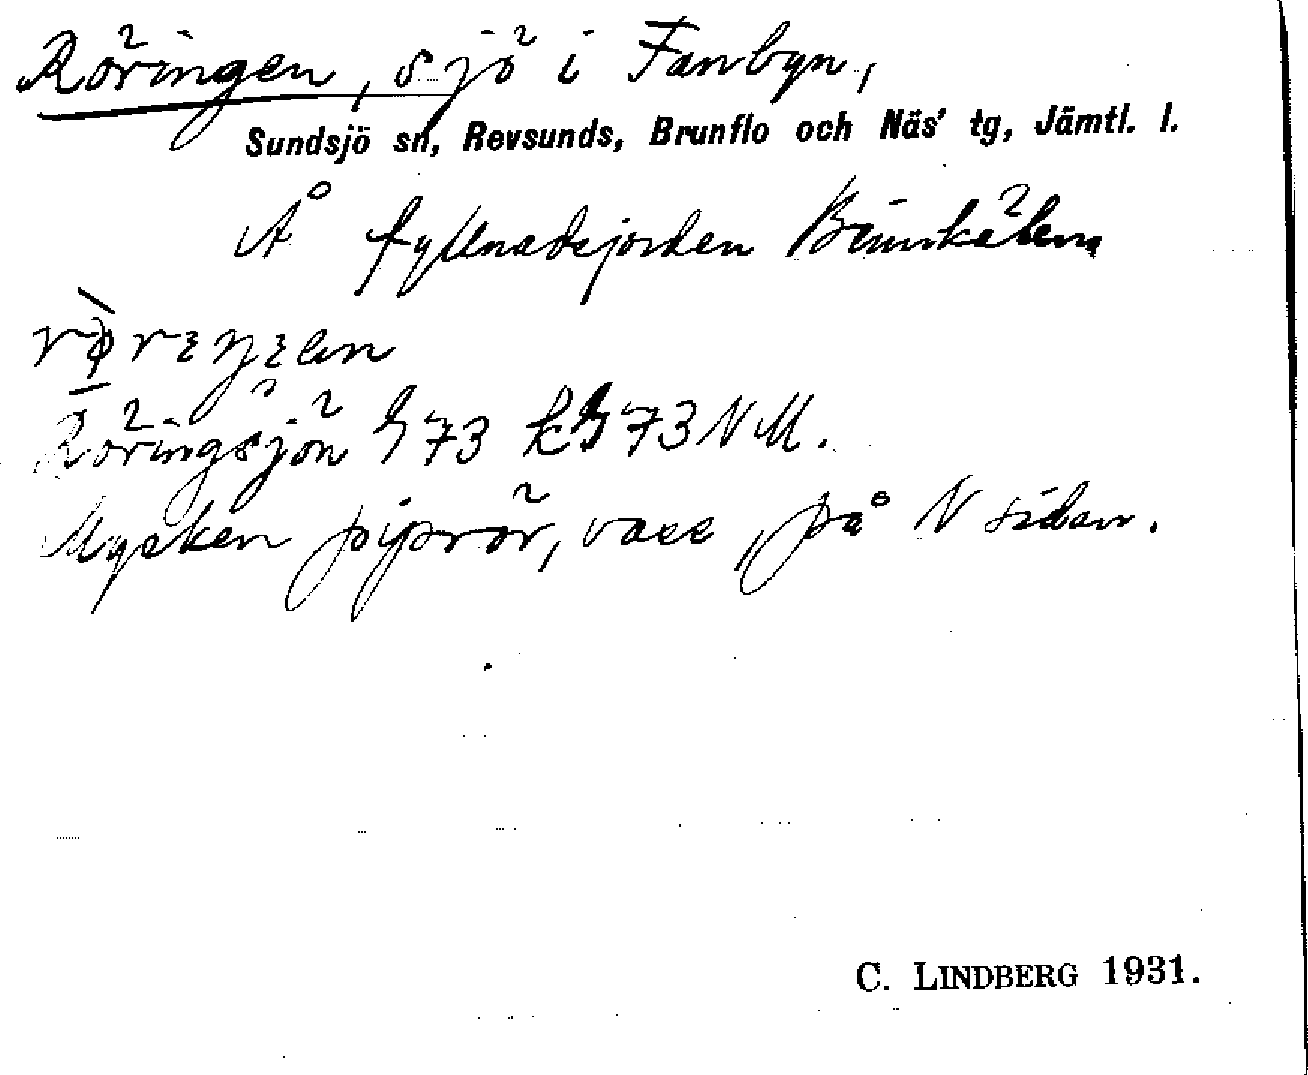 Röringen, sjö i Fanbyn,
Sundsjö sn, Revsunds, Brunflo och Näs' tg, Jämtl. l.
Å fyllnadsjorden
Röringsjön G 73 kG 73 NM.
Mycken piprör, vass, på N sidan.
C. LINDBERG 1931.